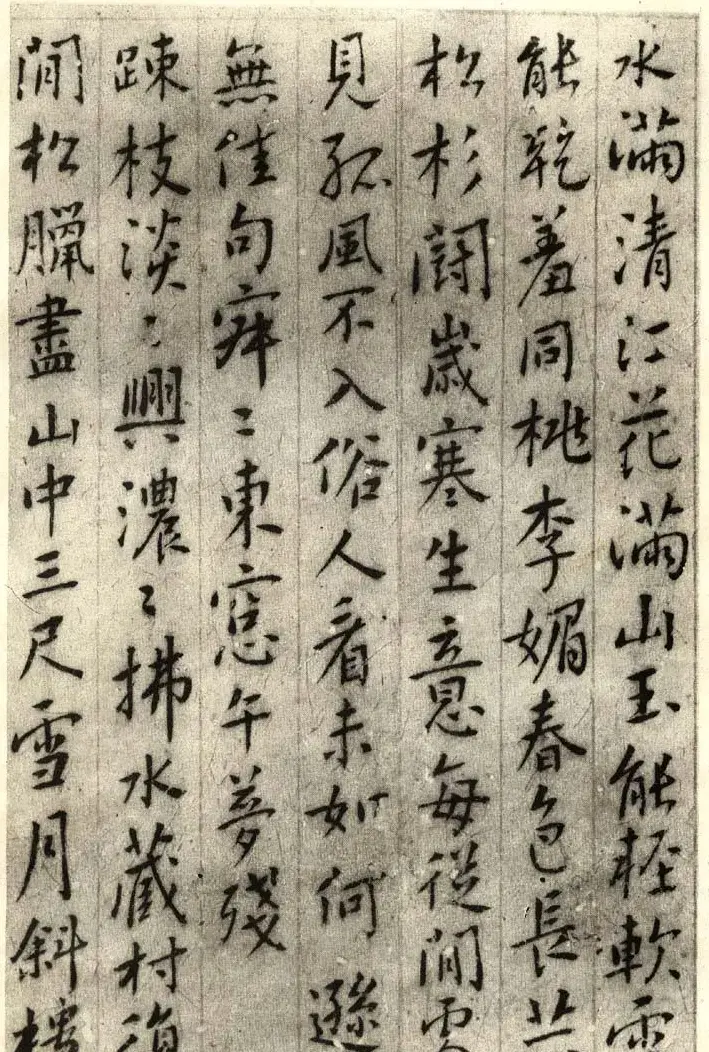 水滿清江花滿山玉能輕軟雪
能乾羞同桃李媚春色長
松杉鬪歲寒生意每從閒
見孤風不入俗人看未如何遜
無佳句〻東窓午夢殘
踈枝淡〻興濃〻拂水藏村復
間松臘盡山中三尺雪月斜樓